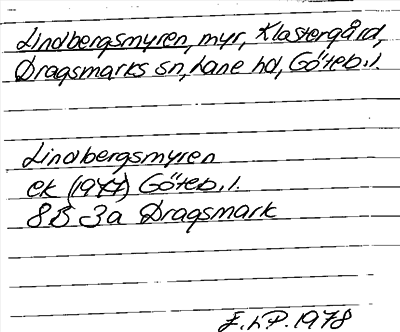 Lindbergsmyren, myr, Klastergård,
Dragsmarks sn, Lane hd, Göteb.l.
Lindbergsmyren
ek (1977) Göteb.l.
8B 3a Dragsmark
E.LP. 1978